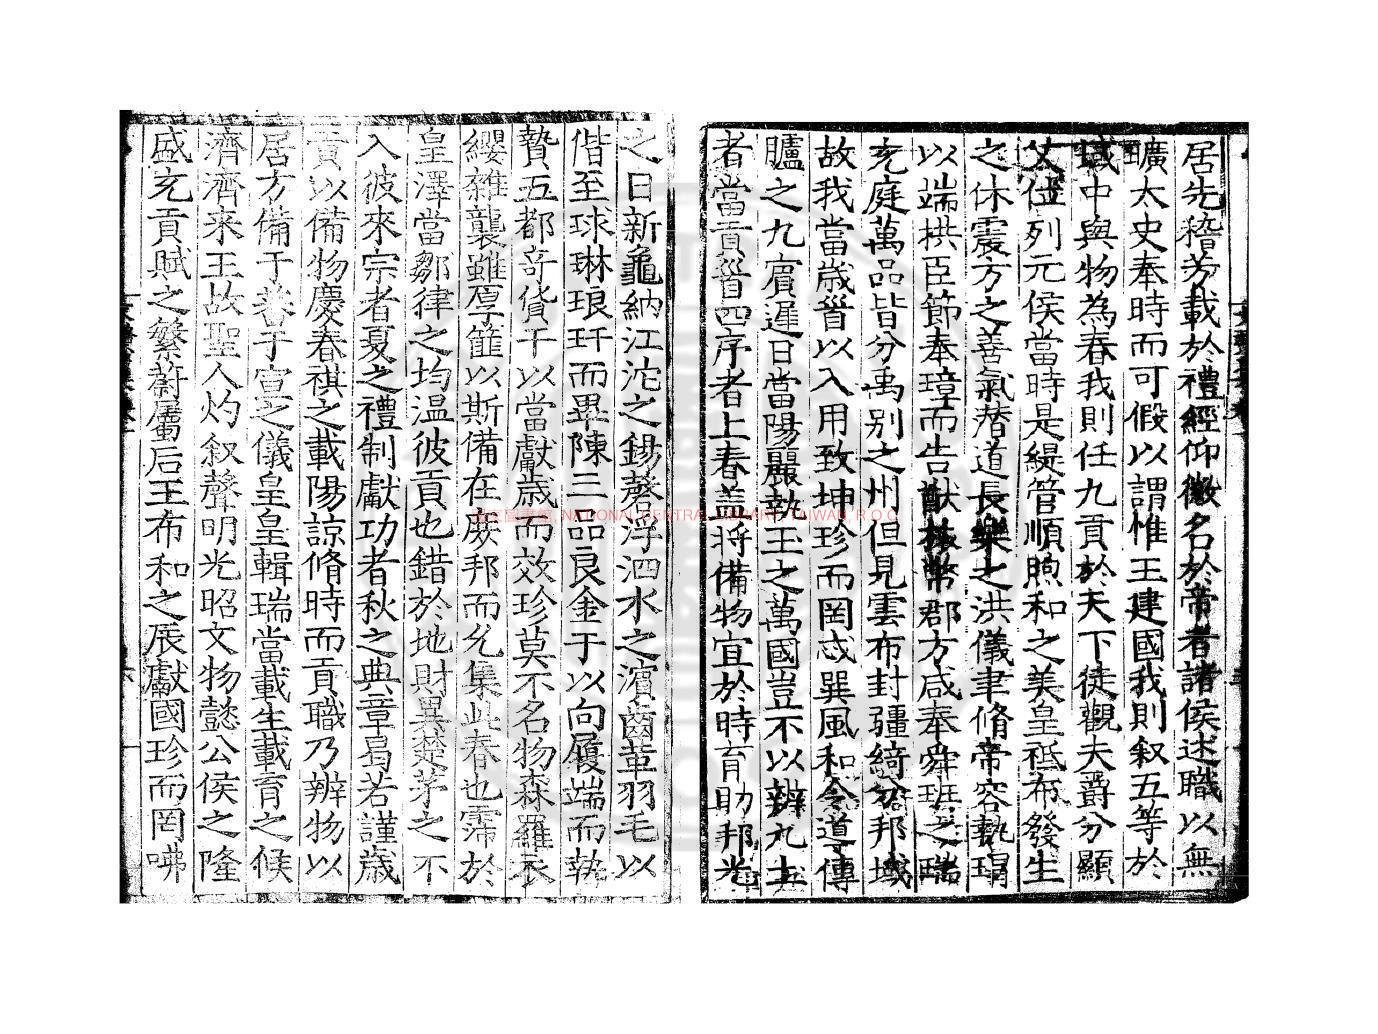 居先稽芳載於禮經仰徽名於帝者諸侯述職以無
曠太史奉時而可假以謂惟王建國我則叙五等於
域中與物為春我則任九貢於天下徒觀夫爵分顯
父位列元侯當時是緹管順煦和之美皇祗布發生
之休震方之善氣潜道長樂之洪儀聿脩帝容執瑁
以端拱臣節奉璋而告猷 幣郡方咸奉舜班之瑞
充庭萬品皆分禹别之州但見雲布封疆綺分邦域
故我當歲首以入用致坤珍而罔忒巽風和令導傳
臚之九賔遲日當陽麗執玉之萬國豈不以辨九土
者當貢首四序者上春盖將備物宜於時育助邦光
之日新龜納江沱之錫磬浮泗水之濱齒革羽毛以
偕至球琳琅玕而畢陳三品良金于以向履端而執
贄五都竒貨于以當獻歲而效珍莫不名物森羅衣
纓雜襲雖厚篚以斯備在庶邦而允集此春也霈於
皇澤當鄒律之均温彼貢也錯於地財異楚茅之不
入彼來宗者夏之禮制獻功者秋之典章曷若謹歲
貢以備物慶春祺之載陽諒脩時而貢職乃辨物以
居方備于 于宣之儀皇皇輯瑞當載生載育之候
濟濟来王故聖人灼叙聲明光昭文物懿公侯之隆
盛充貢賦之繁蔚屬后王布和之辰獻國珍而罔咈
國家圖書館, NATIONAL CENTRAL LIBRARY, TAIWAN, R.O.C